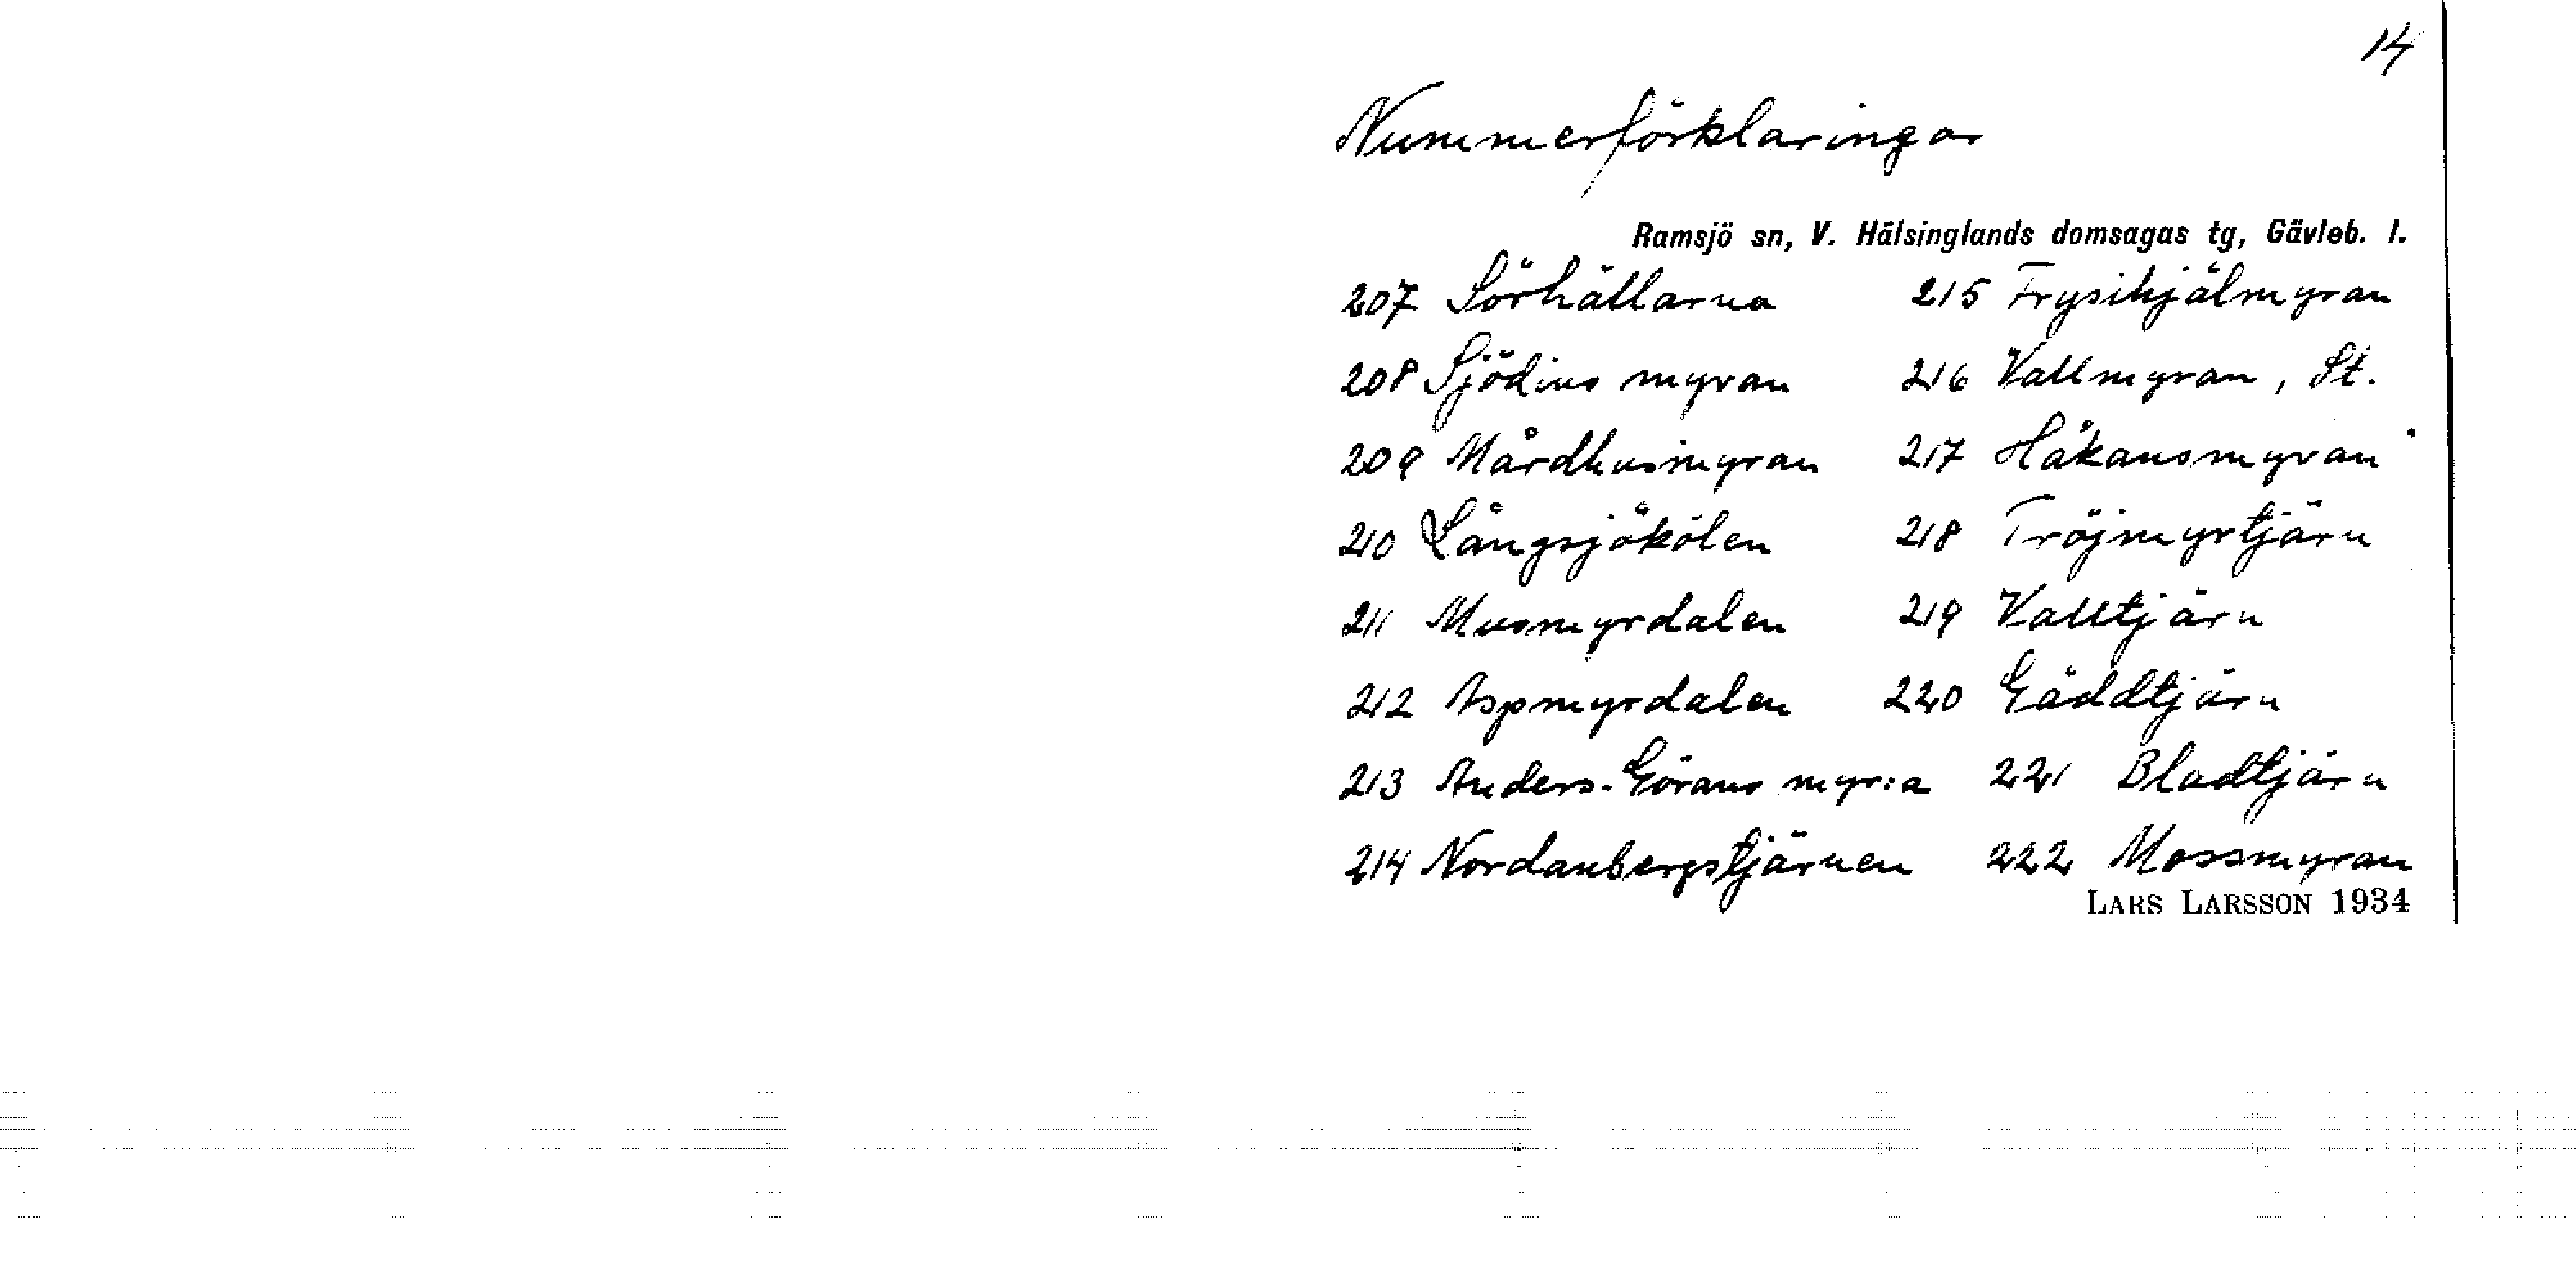 14
Nummerförklaringar
Ramsjö sn, V. Hälsinglands domsagas tg, Gävleb. l.
207 Sörhällarna 215 Frysihjälmyran
208 Sjödins myran 216 Vallmyran, St.
209 Mårdhusmyran 217 Håkansmyran
210 Långsjökölen 218 Tröjmyrtjärn
211 Musmyrdalen 219 Valltjärn
212 Aspmyrdalen 220 Gäddtjärn
213 Anders-Görans myr:a 221 Bladtjärn
214 Nordanbergstjärnen 222 Mossmyran
LARS LARSSON 1934